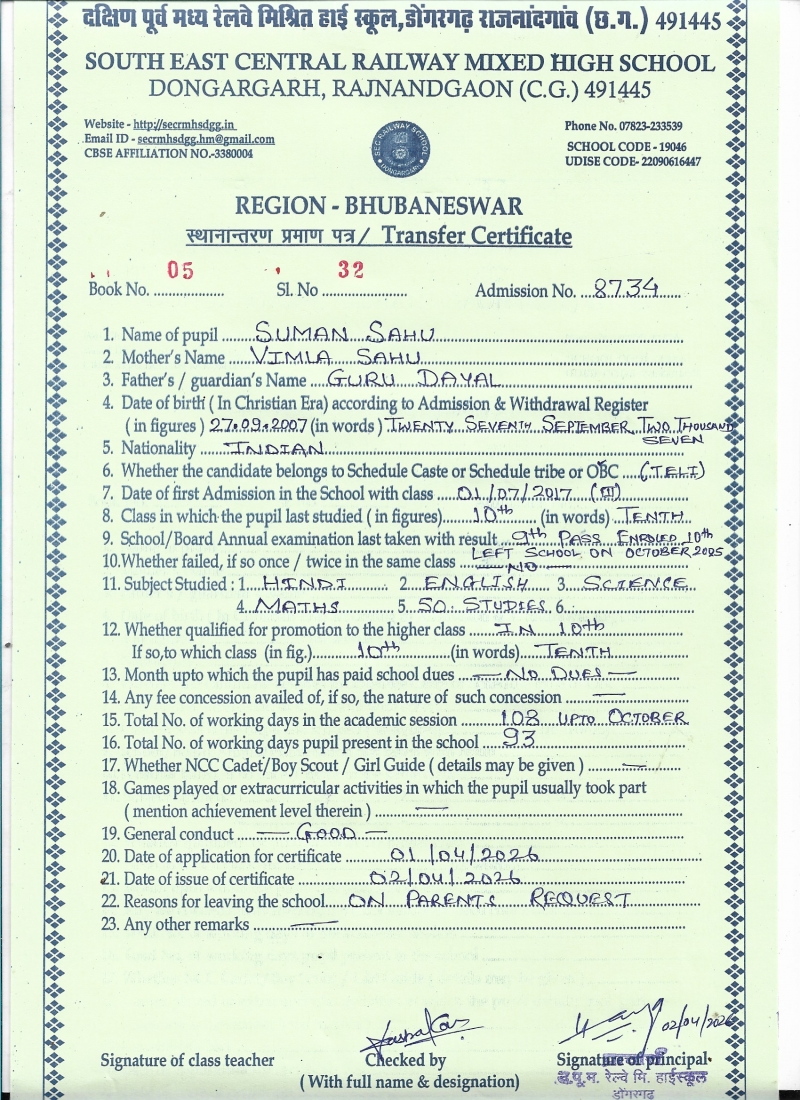 दक्षिण पूर्व मध्य रेलवे मिश्रित हाई स्कूल,डोंगरगढ़ राजनांदगांव (छ.ग.) 491445
SOUTH EAST CENTRAL RAILWAY MIXED HIGH SCHOOL
DONGARGARH, RAJNANDGAON (C.G.) 491445
Website - http://secrmhsdgg.in
Email ID - secrmhsdgg.hm@gmail.com
CBSE AFFILIATION NO.-3380004
SEC RAILWAY SCHOOL
DONGARGARH
Phone No. 07823-233539
SCHOOL CODE - 19046
UDISE CODE- 22090616447
REGION - BHUBANESWAR
स्थानान्तरण प्रमाण पत्र / Transfer Certificate
Book No. 05 Sl. No 32 Admission No. 8734
1. Name of pupil SUMAN SAHU
2. Mother's Name VIMLA SAHU
3. Father's / guardian's Name GURU DAYAL
4. Date of birth ( In Christian Era) according to Admission & Withdrawal Register
(in figures ) 27.09.2007 (in words ) TWENTY SEVENTH SEPTEMBER TWO THOUSAND
SEVEN
5. Nationality INDIAN
6. Whether the candidate belongs to Schedule Caste or Schedule tribe or OBC (TELI)
7. Date of first Admission in the School with class 01/07/2017 (III)
8. Class in which the pupil last studied ( in figures) 10th (in words) TENTH
9. School/Board Annual examination last taken with result 9th PASS ENROLED 10th
LEFT SCHOOL ON OCTOBER 2025
10.Whether failed, if so once / twice in the same class NO
11. Subject Studied : 1. HINDI 2 ENGLISH 3. SCIENCE
4. MATHS 5. SO. STUDIES 6.
12. Whether qualified for promotion to the higher class IN 10th
If so,to which class (in fig.) 10th (in words) TENTH
13. Month upto which the pupil has paid school dues — NO DUES —
14. Any fee concession availed of, if so, the nature of such concession —
15. Total No. of working days in the academic session 108 UPTO OCTOBER
16. Total No. of working days pupil present in the school 93
17. Whether NCC Cadet/Boy Scout / Girl Guide ( details may be given ) —
18. Games played or extracurricular activities in which the pupil usually took part
( mention achievement level therein ) —
19. General conduct — GOOD —
20. Date of application for certificate 01/04/2026
21. Date of issue of certificate 02/04/2026
22. Reasons for leaving the school ON PARENTS REQUEST
23. Any other remarks —
02/04/2026
Signature of class teacher Checked by Signature of principal
( With full name & designation)
द.पू.म. रेल्वे मि. हाईस्कूल
डोंगरगढ़